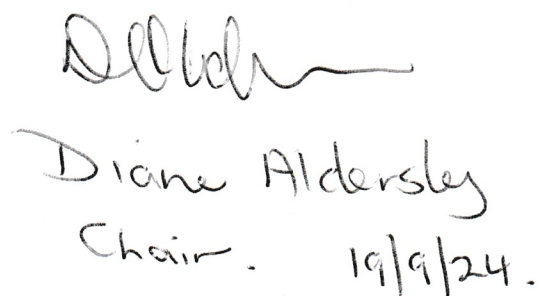 Diane Aldersley
Chair. 19/9/24.